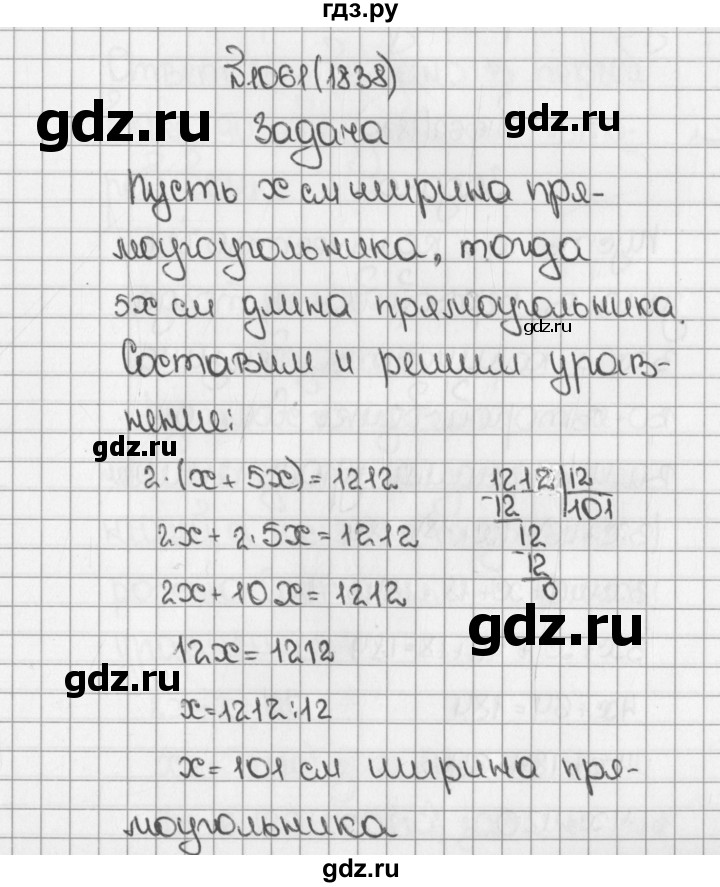 гдз.ру
№1061(1838)
gdz.ru
gdz.ru
Задача
Пусть x см ширина пря-
моугоугольника, тогда
5x см длина прямоугольника.
gdz.ru
Составим и решим урав-
нение:
gdz.ru
2·(x+5x)=1212
2x+2·5x=1212
2x+10x=1212
12x=1212
x=1212:12
x=101 см ширина пря-
моугольника
1212|12
-12 |101
12
-12
0
gdz.ru
gdz.ru
gdz.ru